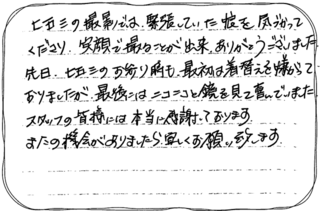 七五三の撮影では、緊張していた娘を気づかって
くださり、笑顔で撮ることが出来、ありがとうございました。
先日、七五三のお参り時も、最初は着替えを嫌がって
おりましたが、最後にはニコニコと鏡を見て喜んでいました。
スタッフの皆様には本当に感謝しております。
またの機会がありましたら宜しくお願い致します。